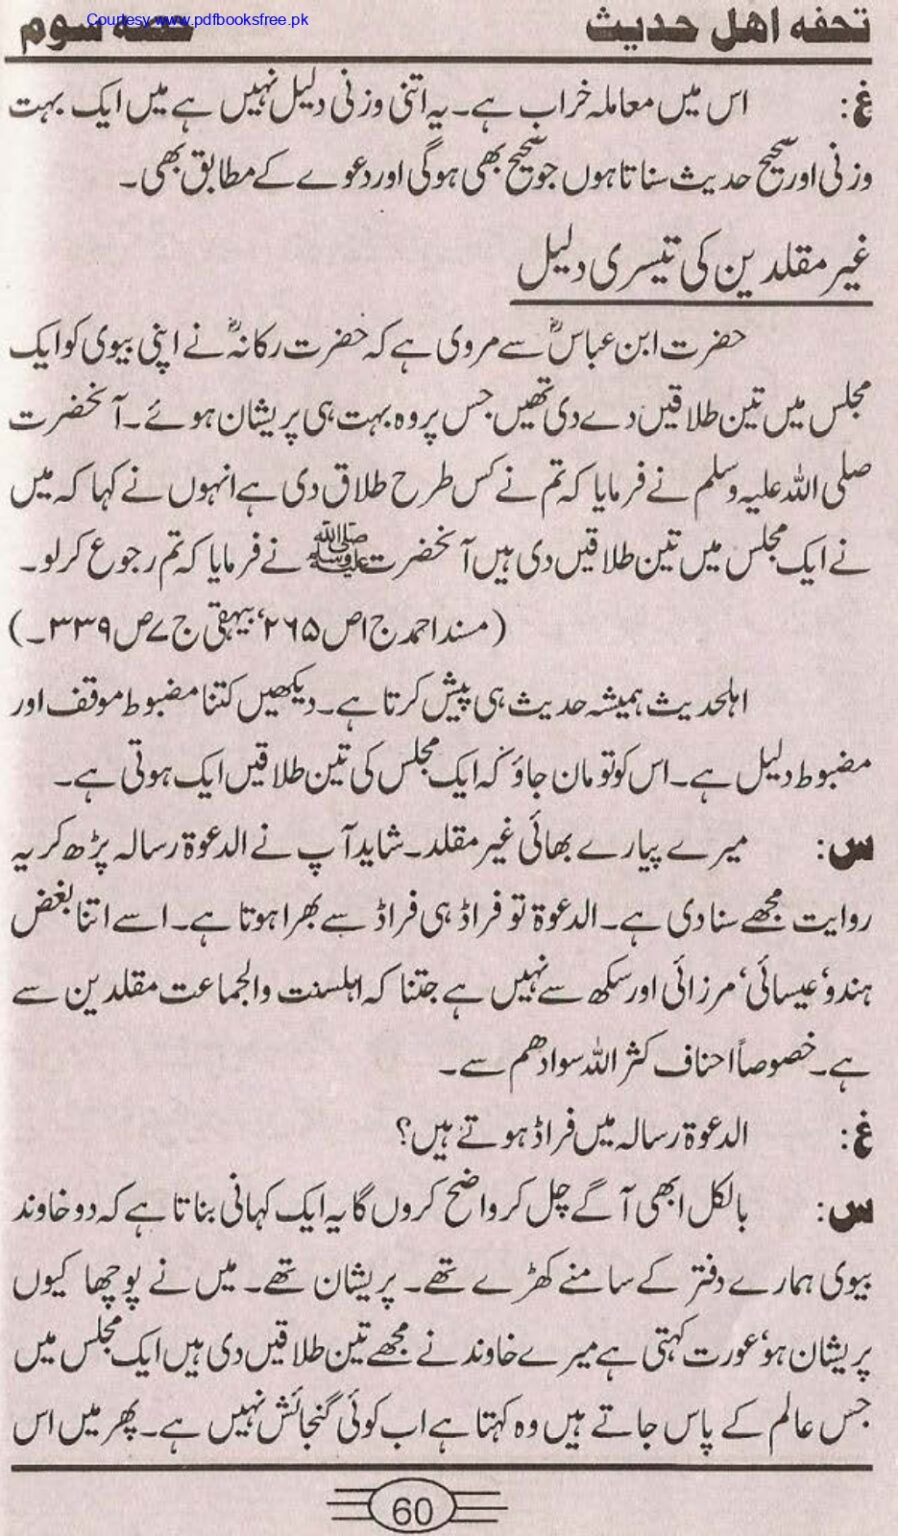 تحفہ اھل حدیث
حصہ سوم
Courtesy www.pdfbooksfree.pk
غ: اس میں معاملہ خراب ہے۔ یہ اتنی وزنی دلیل نہیں ہے میں ایک بہت
وزنی اور صحیح حدیث سناتا ہوں جو صحیح بھی ہوگی اور دعوے کے مطابق بھی۔
غیر مقلدین کی تیسری دلیل
حضرت ابن عباسؓ سے مروی ہے کہ حضرت رکانہؓ نے اپنی بیوی کو ایک
مجلس میں تین طلاقیں دے دی تھیں جس پر وہ بہت ہی پریشان ہوئے۔ آنحضرت
صلی اللہ علیہ وسلم نے فرمایا کہ تم نے کس طرح طلاق دی ہے انہوں نے کہا کہ میں
نے ایک مجلس میں تین طلاقیں دی ہیں آنحضرت ﷺ نے فرمایا کہ تم رجوع کر لو۔
(مسند احمد ج۱ ص۲۶۵، بیہقی ج۷ ص۳۳۹۔)
اہلحدیث ہمیشہ حدیث ہی پیش کرتا ہے۔ دیکھیں کتنا مضبوط موقف اور
مضبوط دلیل ہے۔ اس کو تو مان جاؤ کہ ایک مجلس کی تین طلاقیں ایک ہوتی ہے۔
س: میرے پیارے بھائی غیر مقلد۔ شاید آپ نے الدعوۃ رسالہ پڑھ کر یہ
روایت مجھے سنا دی ہے۔ الدعوۃ تو فراڈ ہی فراڈ سے بھرا ہوتا ہے۔ اسے اتنا بغض
ہندو، عیسائی، مرزائی اور سکھ سے نہیں ہے جتنا کہ اہلسنت والجماعت مقلدین سے
ہے۔ خصوصاً احناف کثر اللہ سوادھم سے۔
غ: الدعوۃ رسالہ میں فراڈ ہوتے ہیں؟
س: بالکل ابھی آگے چل کر واضح کروں گا یہ ایک کہانی بناتا ہے کہ دو خاوند
بیوی ہمارے دفتر کے سامنے کھڑے تھے۔ پریشان تھے۔ میں نے پوچھا کیوں
پریشان ہو، عورت کہتی ہے میرے خاوند نے مجھے تین طلاقیں دی ہیں ایک مجلس میں
جس عالم کے پاس جاتے ہیں وہ کہتا ہے اب کوئی گنجائش نہیں ہے۔ پھر میں اس
60